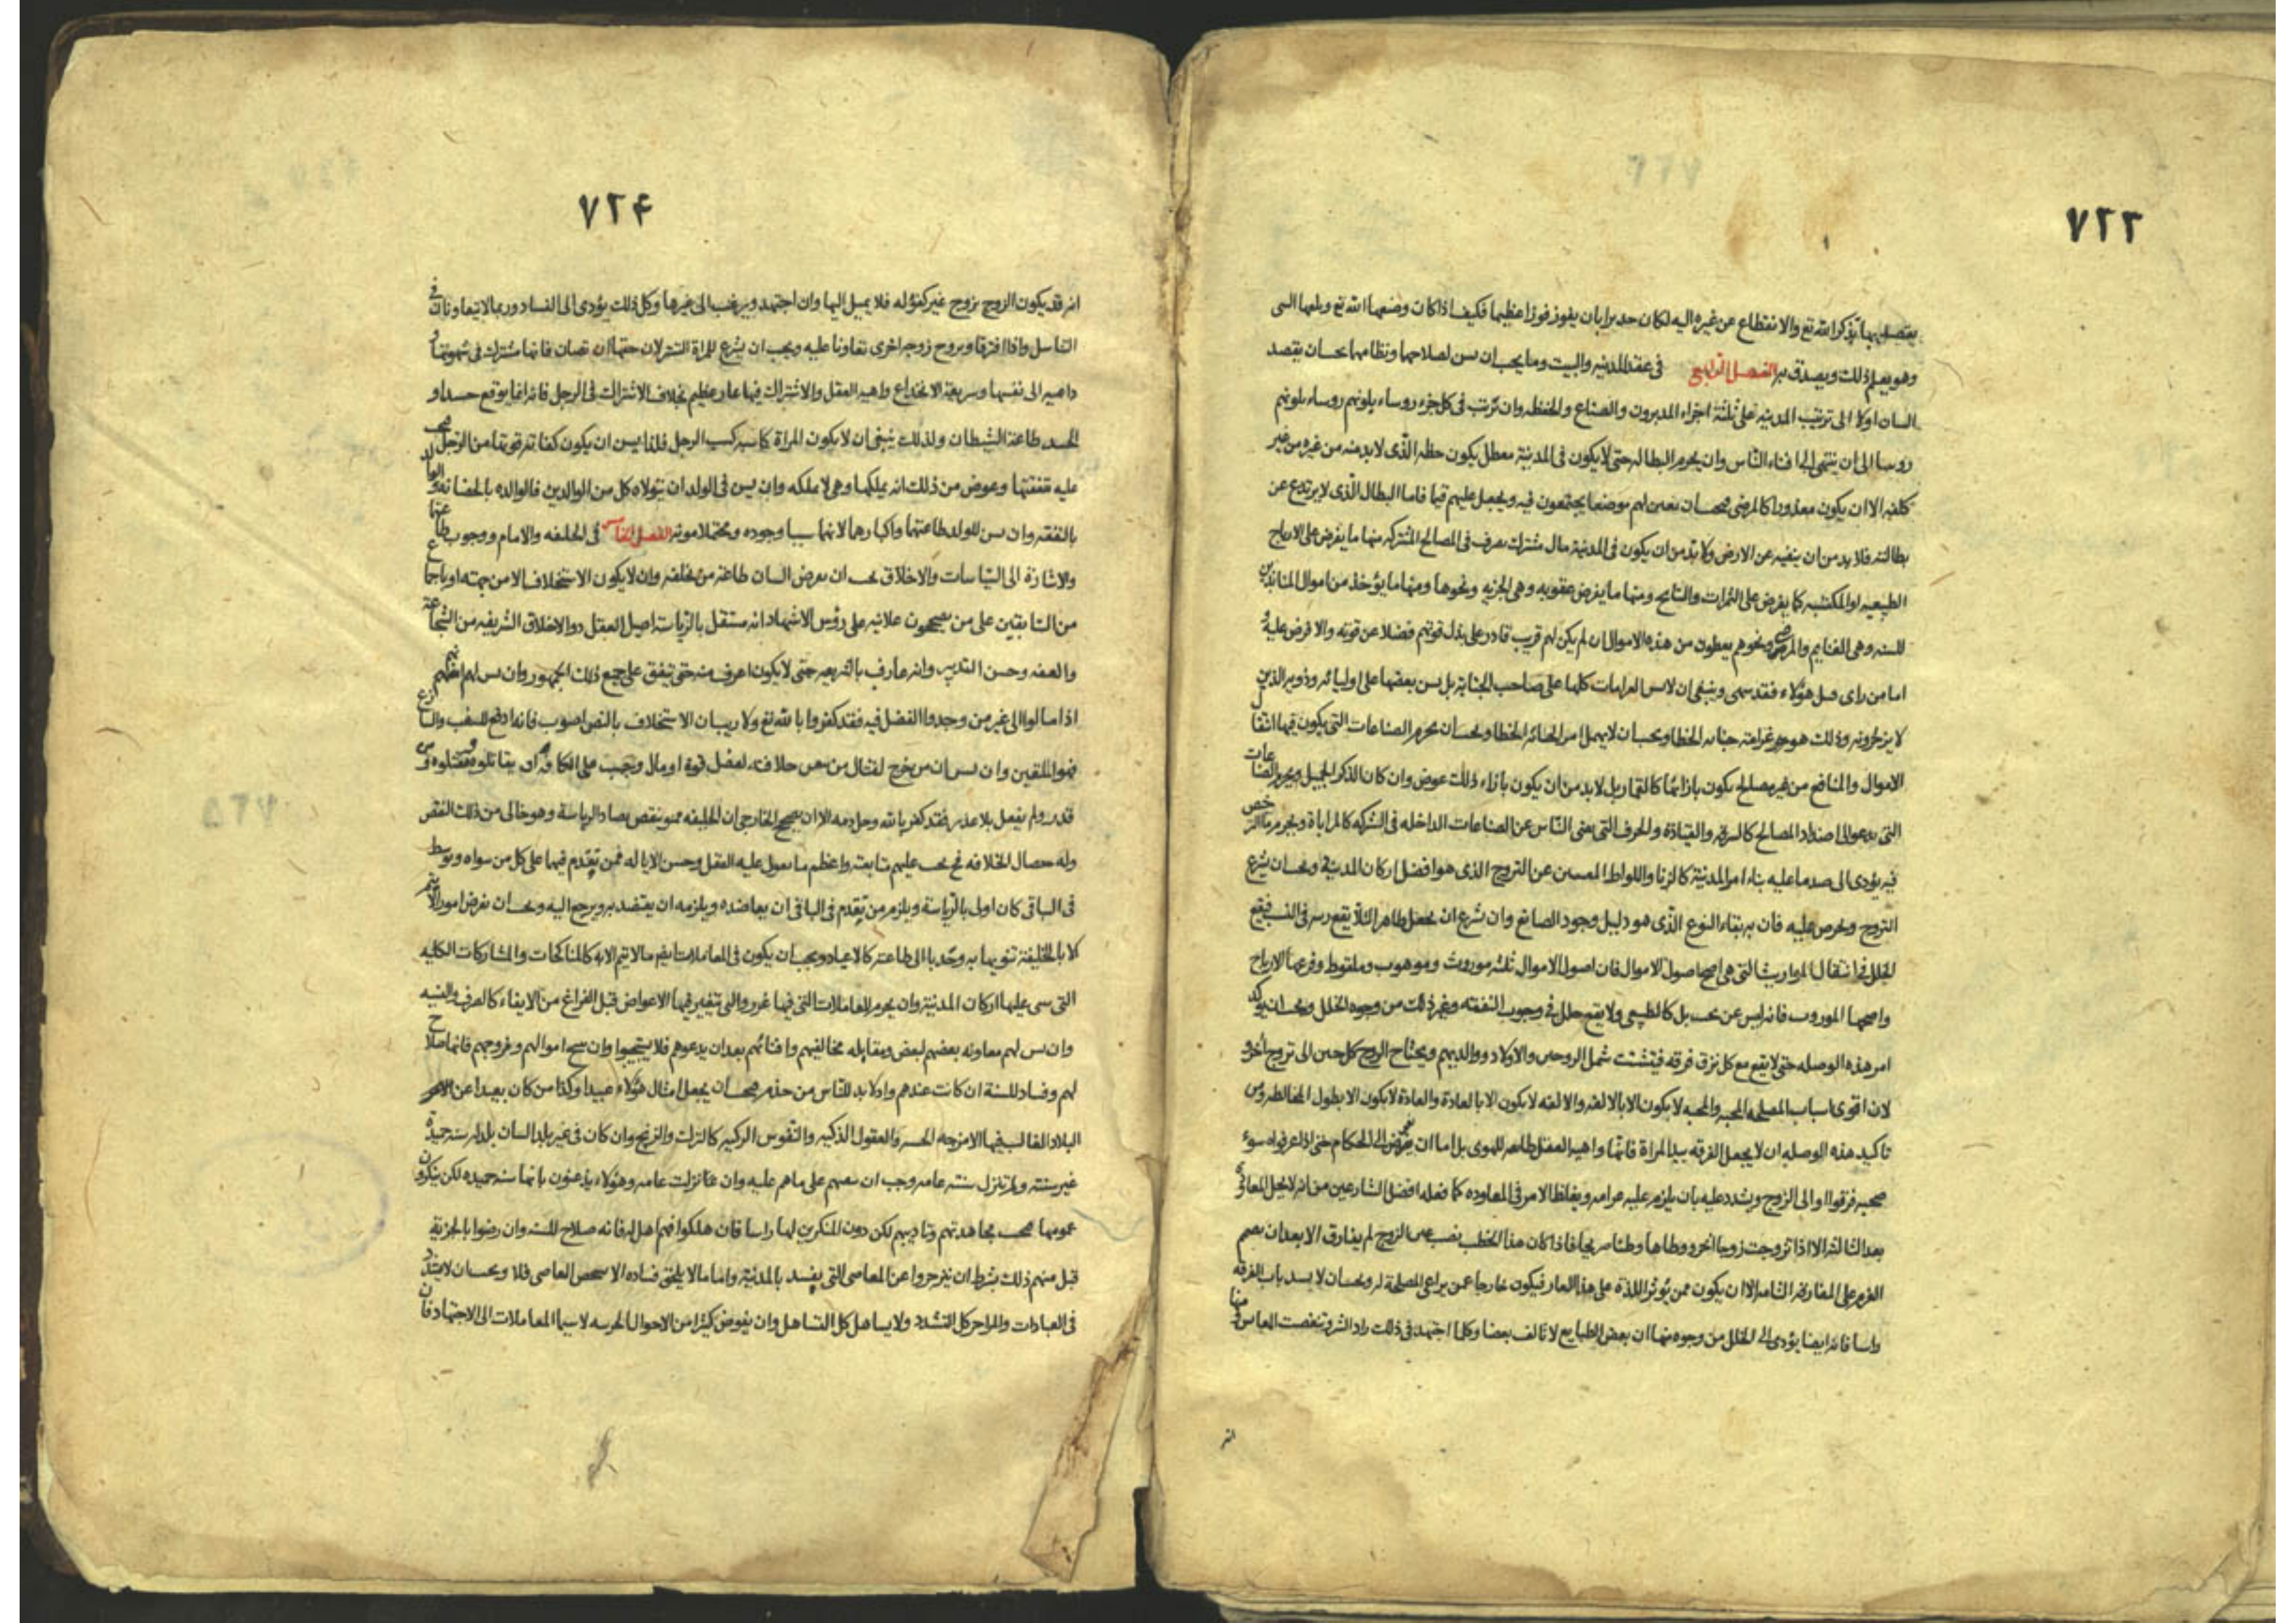 ٧٢٣
يقصد بها تذكر الله تع والانقطاع عن غيره اليه لكان جديرا بان يفوز فوزا عظيما فكيف اذا كان وضعها الله تع وبلغها النبى
وهو يعلم ذلك ويصدق به الفصل الرابع فى عقد المدينه والبيت وما يجب ان يسن لصلاحها ونظامها يجب ان يقصد
السان اولا الى ترتيب المدينه على ثلثة اجزاء المدبرون والصناع والحفظه وان يرتب فى كل جزء روساء يلونهم روساء يلونهم
روسا الى ان ينتهى الى افناء الناس وان يحرم البطاله حتى لا يكون فى المدينة معطل يكون حظه الذى لابد منه من غيره من غير
كلفه الا ان يكون معذورا كالمرضى فيجب ان يعين لهم موضعا يجتمعون فيه ويجعل عليهم قيما فاما البطال الذى لا يرتدع عن
بطالته فلا بد من ان ينفيه عن الارض ولا بد من ان يكون فى المدينة مال مشترك يصرف فى المصالح المشتركه منها ما يفرض على الارباح
الطبيعيه او المكتسبه كما يفرض على الثمرات والنتايج ومنها ما يفرض عقوبه وهى الجزيه ونحوها ومنها ما يؤخذ من اموال المنابذين
للسنه وهى الغنايم والمرضى ونحوهم يعطون من هذه الاموال ان لم يكن لهم قريب قادر على بذل قوتهم فضلا عن قوته والا فرض عليه و
اما من راى قتل هؤلاء فقد سهى وينبغى ان لا يسن الغرامات كلها على صاحب الجناية بل يسن بعضها على اوليائه وذويه الذين
لا يزجرونه وذلك هو غرامة جنايه الخطا ويجب ان لا يهمل امر الجنايه الخطا ويجب ان يحرم الصناعات التى يكون فيها انتقال
الاموال والمنافع من غير مصالح يكون بازائها كالقمار بل لا بد من ان يكون بازاء ذلك عوض وان كان الذكر الجميل ويحرم الصناعات
التى يدعو الى اضداد المصالح كالسرقه والقيادة والحرف التى يغنى الناس عن الصناعات الداخله فى الشركه كالمراباة ويحرم ما الترخص
فيه يؤدى الى ضد ما عليه بناء امر المدينة كالزنا واللواط عن التزوج الذى هو افضل اركان المدينة ويجب ان يشرع
التزوج ويحرص عليه فان به بقاء النوع الذى هو دليل وجود الصانع وان شرع ان يحصل ظاهرا لئلا يقع ريبه فى النسب فيقع
الخلل فى انتقال المواريث التى هى اصح اصول الاموال فان اصول الاموال ثلثه موروث وموهوب وملقوط وفرعها الارباح
واصحها الموروث فانه ليس عن بخت بل كالطبيعى ولا يقع خلل فى وجوب النفقته وغير ذلك من وجوه الخلل ويجب ان يؤكد
امر هذه الوصله حتى لا يقع مع كل نزق فرقه فيتشتت شمل الزوجين والاولاد ووالديهم ويحتاج الزوج كل حين الى تزوج اخرى
لان اقوى اسباب المصلحه المحبه والمحبه لا يكون الا بالالفه والالفه لا يكون الا بالعادة والعادة لا يكون الا بطول المخالطه ومن
تاكيد هذه الوصله ان لا يجعل الفرقه بيد المراة فانها واهيه العقل طايعه للهوى بل اما ان يفوض الى الحكام حتى اذا عرفوا سوء
صحبه فرقوا او الى الزوج ويشدد عليه بان يلزم عليه غرامه ويغلظ الامر فى المعاوده كما فعله افضل الشارعين من انه لا يحل المعاودة
بعد الثالثه الا اذا تزوجت زوجا اخر ووطاها وطئا صريحا فاذا كان هذا الخطب نصب عين الزوج لم يفارق الا بعد ان يصمم
العزم على المفارقه التامه الا ان يكون ممن يؤثر اللذة على هذا العار فيكون خارجا عمن يراعى المصلحة له ويجب ان لا يسد باب الفرقه
راسا فانه ايضا يؤدى الى الخلل من وجوه منها ان بعض الطبايع لا تالف بعضا وكلما اجتهد فى ذلك زاد الشر وتنغصت المعاش ومنها
انه
٧٢٤
انه قد يكون الزوج بزوج غير كفؤ له فلا يميل اليها وان اجتهد ويرغب الى غيرها وكل ذلك يؤدى الى الفساد وربما لا يتعاونان فى
التناسل واذا افترقا وتزوج زوجا اخرى تعاونا عليه ويجب ان يشرع للمراة التستر لان حقها ان تصان فانها مشترك فى شهوتها و
داعيه الى نفسها وسريعة الانخداع واهيه العقل والاشتراك فيها عار عظيم بخلاف الاشتراك فى الرجل فانه انما يوقع حسدا و
الحسد طاعة الشيطان ولذلك ينبغى ان لا يكون المراة كاسبه كسب الرجل فلذا يسن ان يكون كفايته من الرجل فيجب
عليه نفقتها وعوض من ذلك انه يملكها وهى لا تملكه وان يسن فى الولد ان يتولاه كل من الوالدين فالوالده بالحضانه والوالد
بالنفقه وان يسن للولد طاعتهما واكبارهما لانهما سببا وجوده ومحتملا مونته الفصل الخامس فى الخليفه والامام ووجوب طاعتهما
والاشارة الى السياسات والاخلاق يجب ان يفرض السان طاعة من يخلفه وان لا يكون الاستخلاف الا من جهته او باجماع
من السابقين على من يصححون علانيه على رؤس الاشهاد انه مستقل بالرياسة اصيل العقل ذو الاخلاق الشريفه من الشجاعة
والعفه وحسن التدبير وانه عارف بالشريعه حتى لا يكون اعرف منه حتى يتفق على جميع ذلك الجمهور وان يسن لهم انهم
اذا مالوا الى غير من وجدوا الفضل فيه فقد كفروا بالله تع ولا ريب ان الاستخلاف بالنص اصوب فانه ادفع للشغب والنزاع
وان يسن ان من يخرج لقتال من خلافته لفضل قوة او مال وتجب على الكافه ان يقاتلوه ويقتلوه ومن
قدر ولم يفعل بلا عذر فقد كفر بالله وحل دمه الا ان يصحح الخارجى ان الخليفه ممنو بنقص يضاد الرياسة وهو خالى من ذلك النقص
وله خصال الخلافه فح يجب عليهم متابعته واعظم ما يعول عليه العقل وحسن الاياله فمن تقدم فيها على كل من سواه وتوسط
فى الباقى كان اولى بالرياسة ويلزم من تقدم فى الباقى ان يعاضده ويلزمه ان يعتضد به ويرجع اليه ويجب ان يفرض امور لا يتم
الا بالخليفة تنويها به وجذبا الى طاعته كالاعياد ويجب ان يكون فى المعاملات ايضا ما لا يتم الا به كالمناكحات والمشاركات الكليه
التى يبنى عليها اركان المدينة وان يحرم المعاملات التى فيها غرر والتى يتغير فيها الاعواض قبل الفراغ من الايفاء كالصرف والنسيه
وان يسن لهم معاونه بعضهم لبعض ومقابله مخالفيهم وافنائهم بعد ان يدعوهم فلا يستجيبوا وان يبيح اموالهم وفروجهم فانها ضلاح
لهم وفساد للسنة ان كانت عندهم واذ لا بد للناس من خدم فيجب ان يجعل امثال هؤلاء عبيدا وكذا من كان بعيدا عن
البلاد الغالب فيها الامزجه الحسنه والعقول الذكيه والنفوس الزكيه كالترك والزنج وان كان فى غير بلد السان بلد له سنه حميدة
غير سنته ولم تنزل سنته عامه وجب ان يدعهم على ما هم عليه وان كان نزلت عامه وهؤلاء يذعنون بانها سنه حميده لكن ينكرون
عمومها فيجب مجاهدتهم وتاديبهم لكن دون المنكرين لها راسا فان هلكوا فهم اهل له فانه صلاح للسنه وان رضوا بالجزية
قبل منهم ذلك بشرط ان ينزجروا عن المعاصى التى يفسد بالمدينة واما ما لا يلحق فساده الا شخص العاصى فلا ويجب ان لا يشدد
فى العبادات والمزاجر كل التشدد ولا يساهل كل التساهل وان يفوض كثيرا من الاحوال الجزئيه لا سيما المعاملات الى الاجتهاد فان